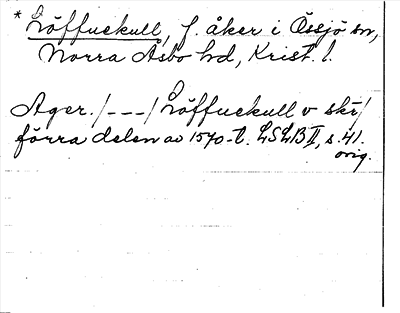 * Löffuekull, f. åker i Össjö sn,
Norra Åsbo hd, Krist. l.
Ager. /---/ Löffuekull v skr/
förra delen av 1570-t. LSLB II, s. 41.
orig.